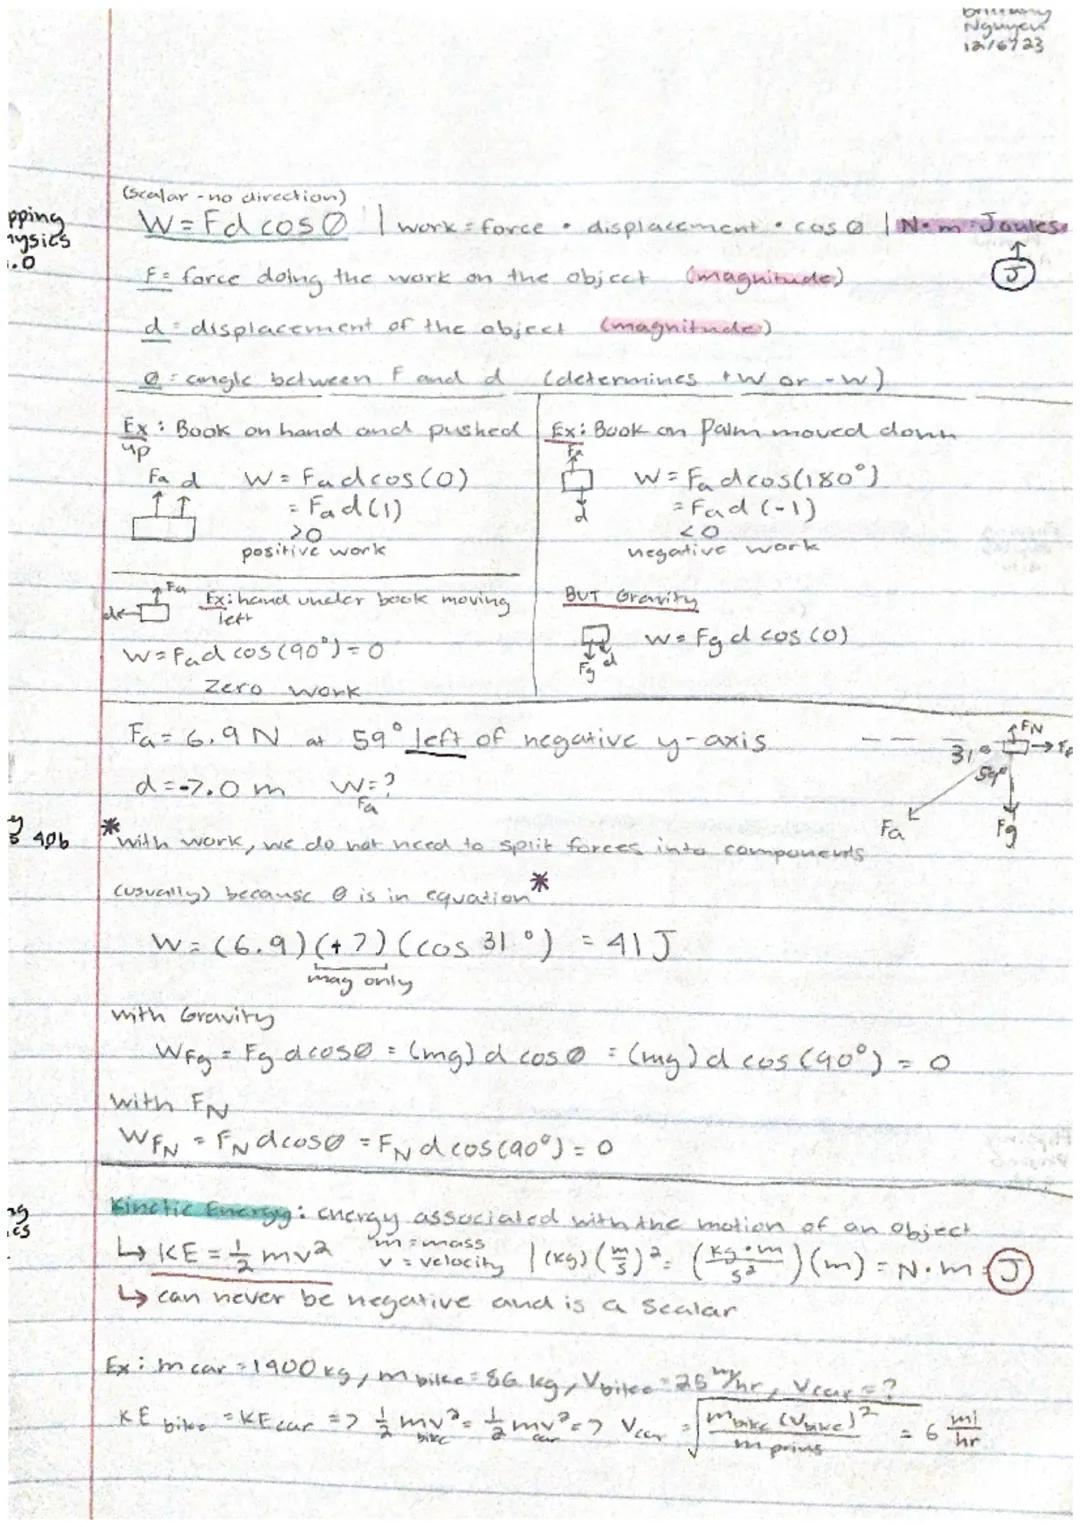 Nguyen
12/6/23
(scalar - no direction)
W = Fd cos Ø | work = force • displacement • cos Ø | N•m = Joules
J
F = force doing the work on the object (magnitude)
d = displacement of the object (magnitude)
Ø = angle between F and d (determines +W or -W)
Ex: Book on hand and pushed up
Fa d
W = Fa d cos(0)
= Fa d (1)
>0
positive work
Ex: Book on palm moved down
Fa
d
W = Fa d cos(180°)
= Fa d (-1)
<0
negative work
Fa
d
Ex: hand under book moving left
W = Fa d cos(90°) = 0
Zero work
BUT Gravity
Fg d
W = Fg d cos(0)
Fa = 6.9 N at 59° left of negative y-axis
d = -7.0 m W = ?
Fa
FN
31°
59°
Fa
Fg
*with work, we do not need to split forces into components
(usually) because Ø is in equation*
W = (6.9)(+7)(cos 31°) = 41 J
mag only
with Gravity
WFg = Fg d cos Ø = (mg) d cos Ø = (mg) d cos(90°) = 0
with FN
WFN = FN d cos Ø = FN d cos(90°) = 0
Kinetic Energy: energy associated with the motion of an object
↳ KE = 1/2 mv² m = mass v = velocity | (kg)(m/s)² = (kg•m/s²)(m) = N•m = J
↳ can never be negative and is a scalar
Ex: m car = 1400 kg, m bike = 86 kg, V bike = 25 mi/hr, V car = ?
KE bike = KE car => 1/2 mv² bike = 1/2 mv² car => V car = √(m bike (V bike)² / m prius) = 6 mi/hr